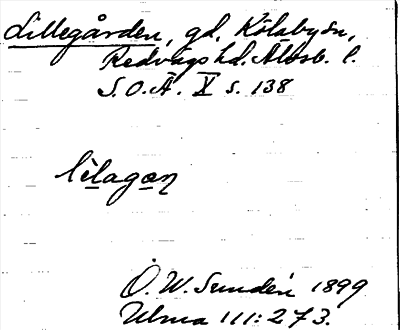 Lillegården, gd, Kölabysn,
Redvägs hd. Älvsb. l.
S.O.Ä. X s. 138
lìlagan
O. W. Sundén 1899
Ulma 111:273.